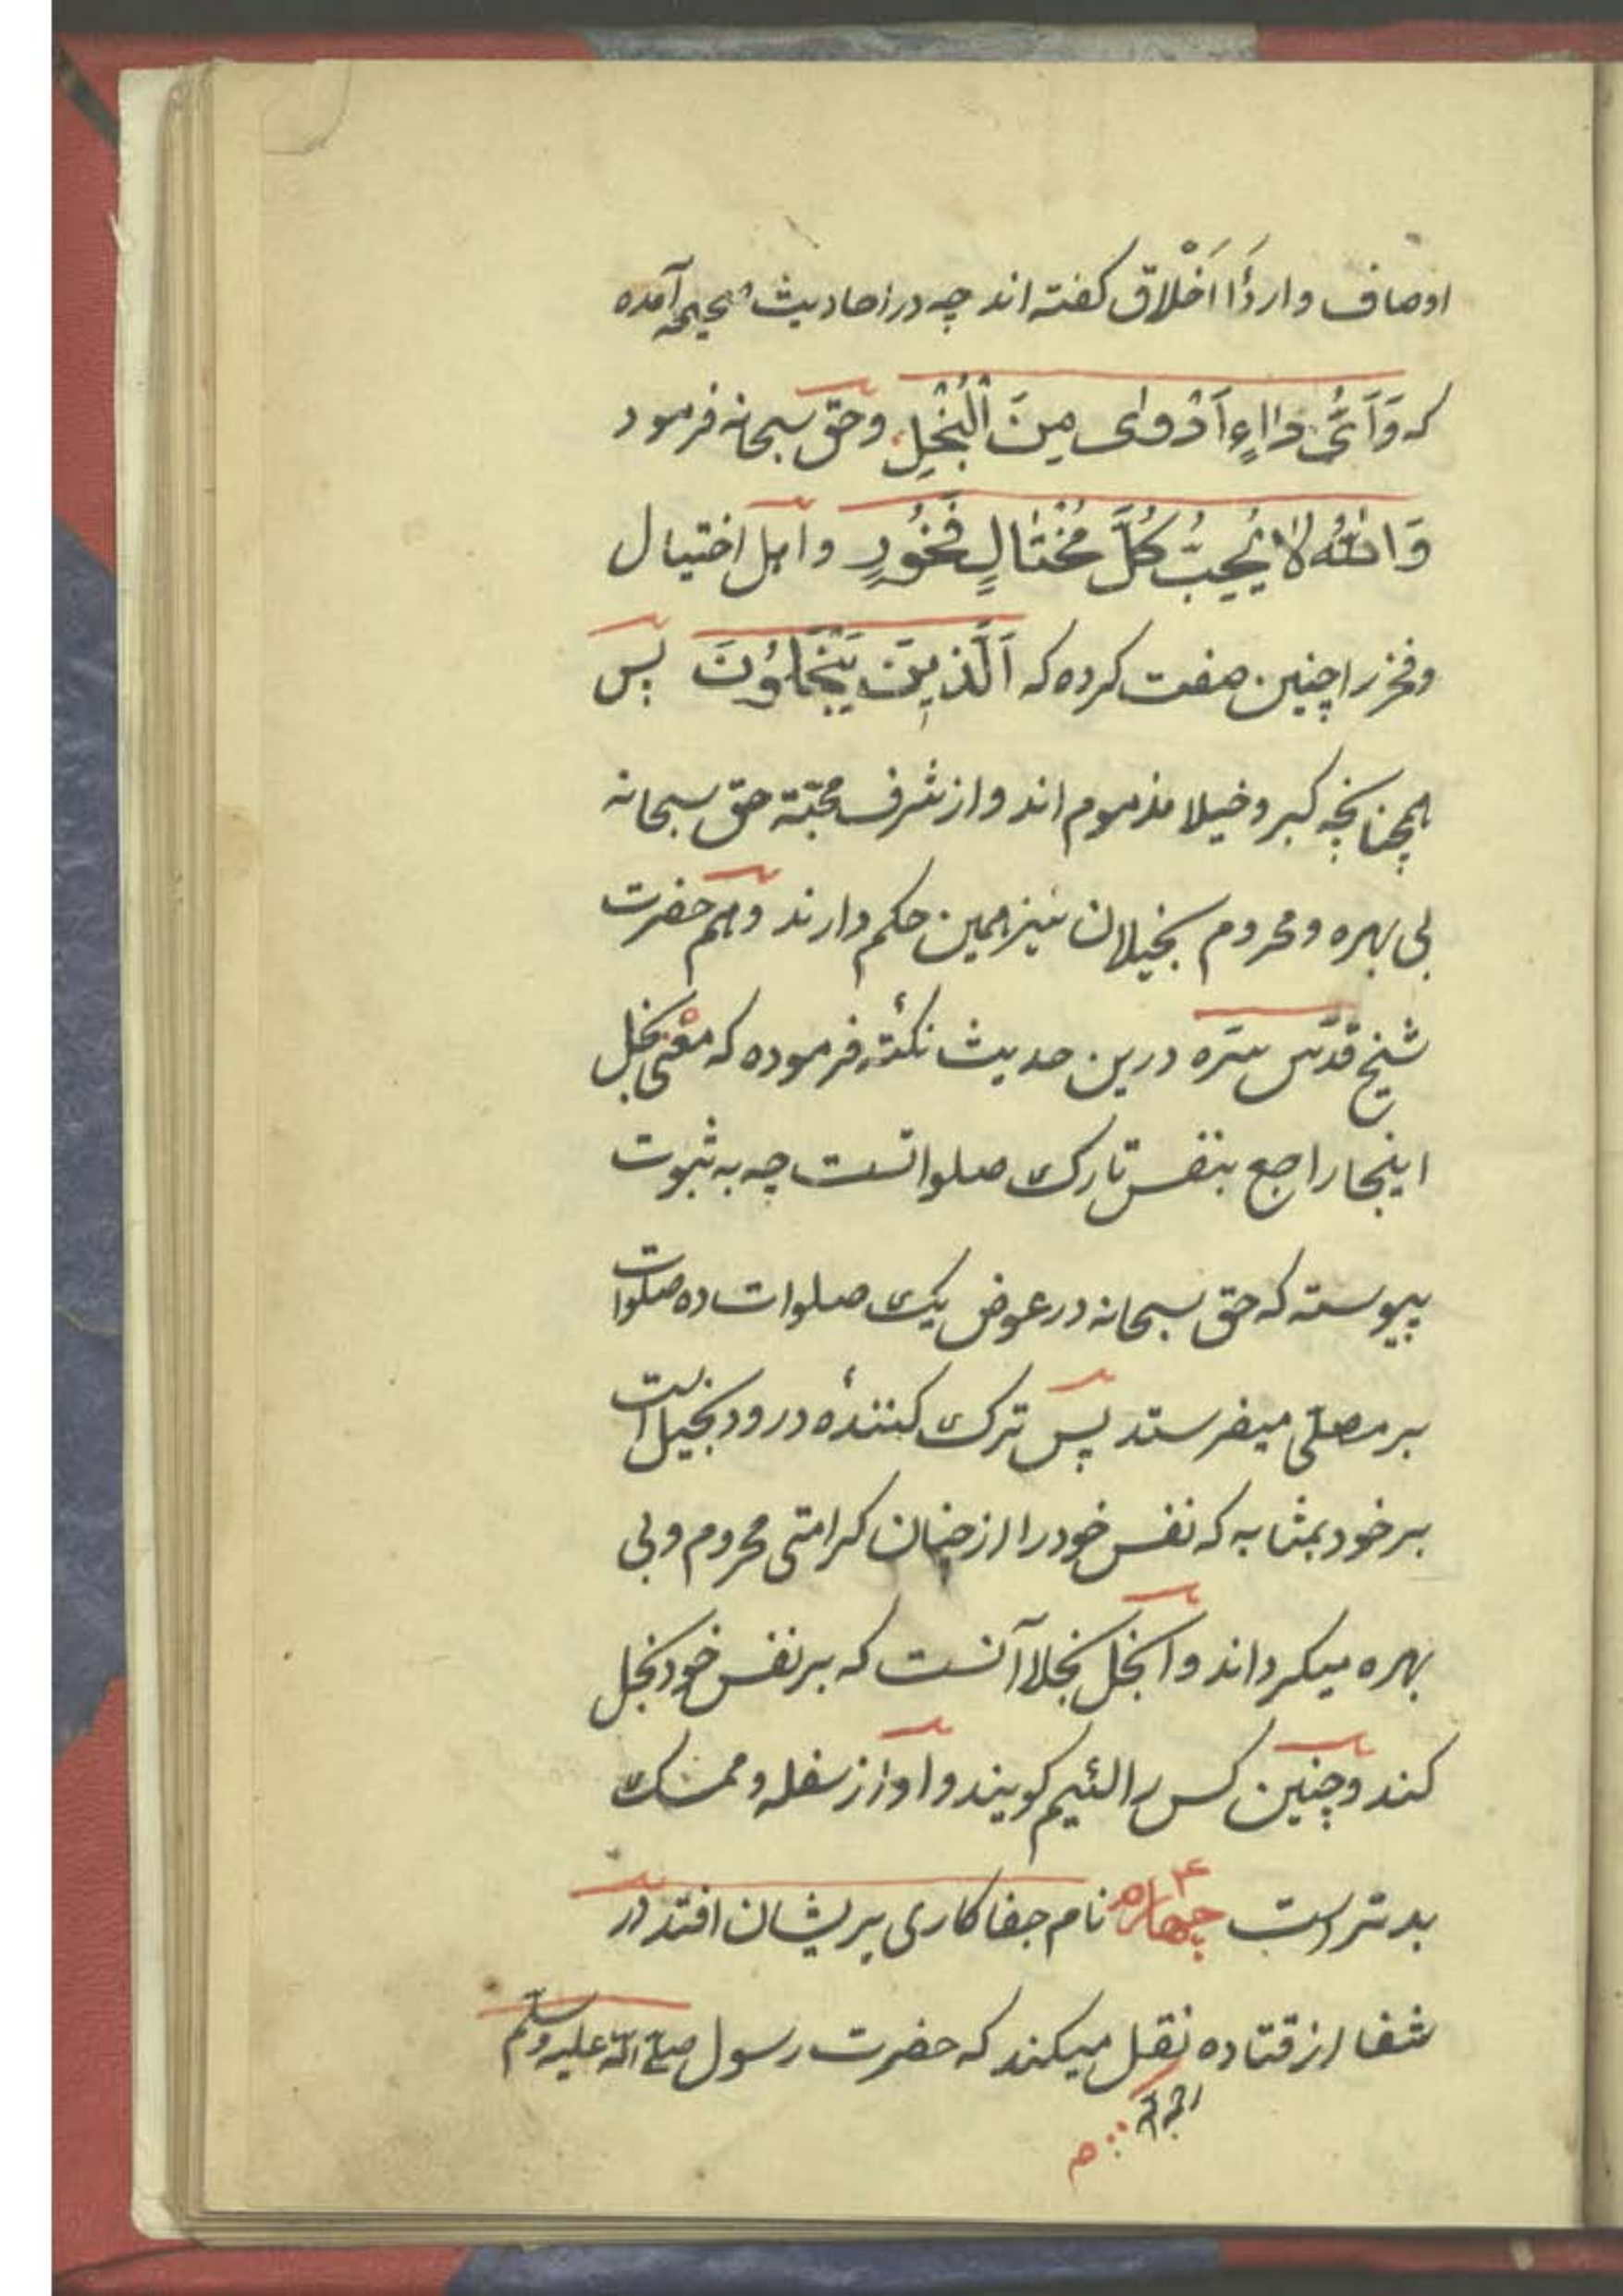 اوصاف و اردأ اَخْلاق کفته اند چه در احادیث صحیحه آمده
که وَاَیُّ دٰاءٍ اَدْوٰی مِنَ الْبُخْلِ وحق سبحانه فرمود
وَاللهُ لاٰ یُحِبُّ کُلَّ مُخْتٰالٍ فَخُورٍ و اهل اختیال
وفخر را چنین صفت کرده که اَلَّذِینَ یَبْخَلُونَ پس
همچنانچه کبر و خیلا مذموم اند و از شرف محبّة حق سبحانه
بی بهره و محروم بخیلان نیز همین حکم دارند و هم حضرت
شیخ قدّس سرّه درین حدیث نکتۀ فرموده که معنی بخل
اینجا راجع بنفس تارک صلواتست چه به ثبوت
پیوسته که حق سبحانه در عوض یک صلوات ده صلوات
بر مصلّی میفرستد پس ترک کنندۀ درود بخیل است
بر خود بمثابه که نفس خود را از چنان کرامتی محروم و بی
بهره میکرداند و ابخل بخلا آنست که بر نفس خود بخل
کند و چنین کس را لئیم کویند و او از سفله و ممسک
بدتر است چهارم ۴ نام جفاکاری بریشان افتد در
شفا از قتاده نقل میکند که حضرت رسول صلی الله علیه وسلّم